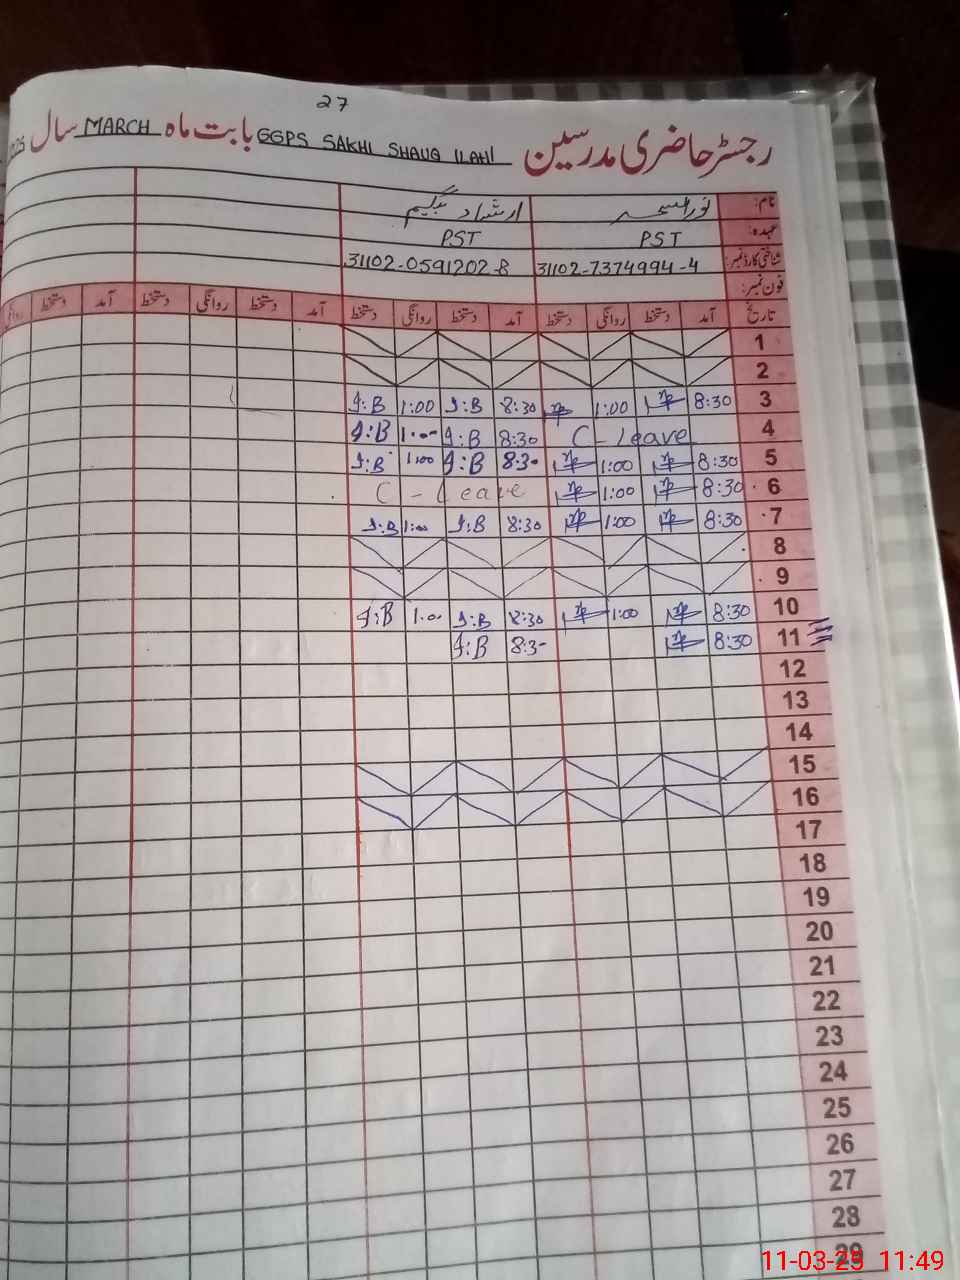 27
رجسٹر حاضری مدرسین GGPS SAKHI SHAUQ ILAHI بابت ماہ MARCH سال 2025
نام: نورالسحر ارشاد بیگم
عہدہ: PST PST
شناختی کارڈ نمبر: 31102-7374994-4 31102-0591202-8
فون نمبر:
تاریخ آمد دستخط روانگی دستخط آمد دستخط روانگی دستخط آمد دستخط روانگی دستخط آمد دستخط روانگی
1
2
3 8:30 1:00 8:30 I:B 1:00 I:B
4 C-Leave 8:30 I:B 1:00 I:B
5 8:30 1:00 8:30 I:B 1:00 I:B
6 8:30 1:00 C-Leave
7 8:30 1:00 8:30 I:B 1:00 I:B
8
9
10 8:30 1:00 8:30 I:B 1:00 I:B
11 8:30 8:30 I:B
12
13
14
15
16
17
18
19
20
21
22
23
24
25
26
27
28
29
11-03-25 11:49